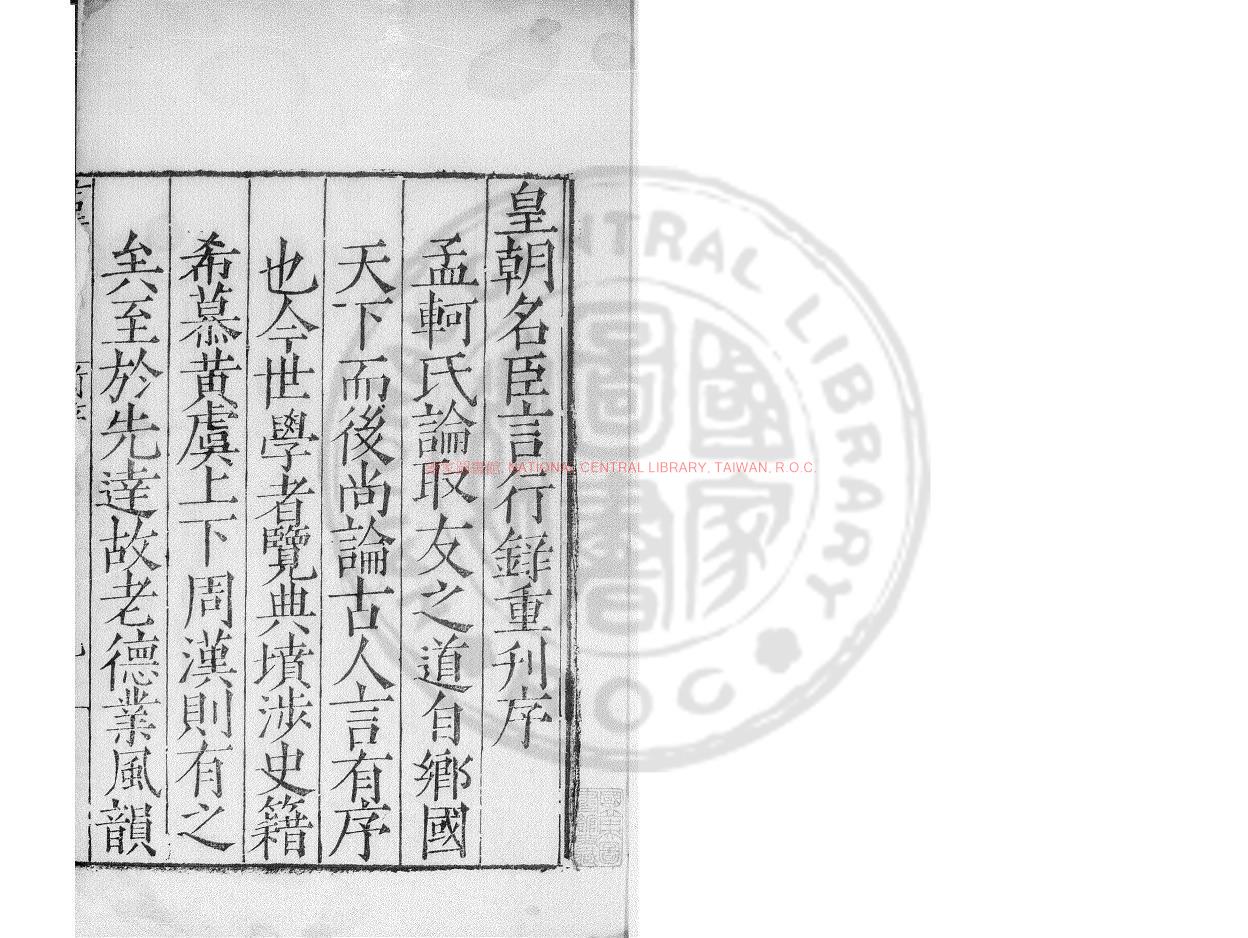 皇朝名臣言行錄重刊序
孟軻氏論取友之道自鄉國
天下而後尚論古人言有序
也今世學者覽典墳涉史籍
希慕黃虞上下周漢則有之
矣至於先達故老德業風韻
國家圖書館, NATIONAL CENTRAL LIBRARY, TAIWAN, R.O.C.
國家圖書
CENTRAL LIBRARY
ROC